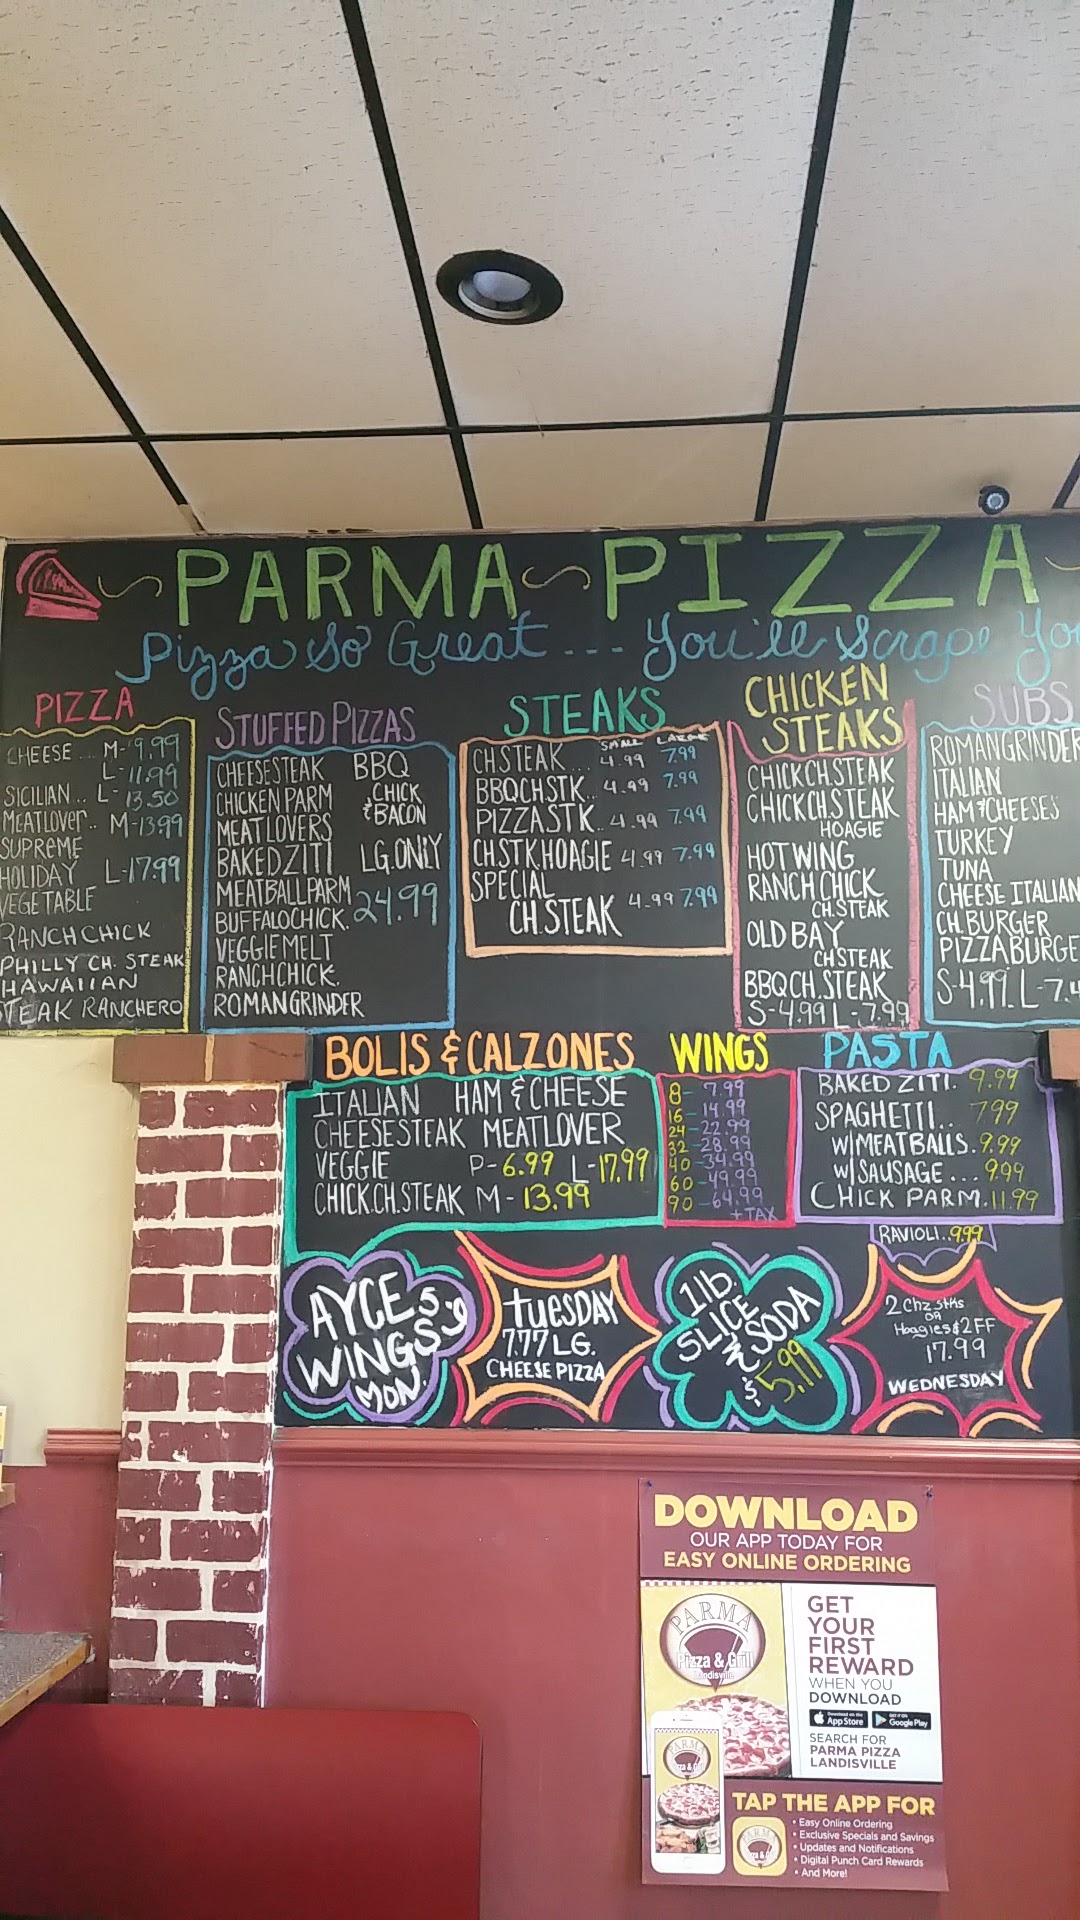 PARMA PIZZA
Pizza So Great... You'll Scrape Yo
PIZZA
CHEESE... M-9.99
L-11.99
SICILIAN.. L-13.50
MEATLOVER.. M-13.99
SUPREME
HOLIDAY L-17.99
VEGETABLE
RANCH CHICK
PHILLY CH. STEAK
HAWAIIAN
TEAK RANCHERO
STUFFED PIZZAS
CHEESESTEAK BBQ
CHICKEN PARM CHICK
MEATLOVERS & BACON
BAKED ZITI LG. ONLY
MEATBALL PARM 24.99
BUFFALO CHICK.
VEGGIE MELT
RANCH CHICK.
ROMAN GRINDER
STEAKS
SMALL LARGE
CH.STEAK... 4.99 7.99
BBQ CH STK.. 4.99 7.99
PIZZA STK.. 4.99 7.99
CH.STK.HOAGIE 4.99 7.99
SPECIAL
CH.STEAK 4.99 7.99
CHICKEN
STEAKS
CHICK CH.STEAK
CHICK CH.STEAK
HOAGIE
HOT WING
RANCH CHICK
CH.STEAK
OLD BAY
CH STEAK
BBQ CH. STEAK
S-4.99 L-7.99
SUBS
ROMAN GRINDER
ITALIAN
HAM & CHEESES
TURKEY
TUNA
CHEESE ITALIAN
CH. BURGER
PIZZA BURGE
S-4.99 L-7.4
BOLIS & CALZONES
ITALIAN HAM & CHEESE
CHEESESTEAK MEATLOVER
VEGGIE P-6.99 L-17.99
CHICK.CH.STEAK M-13.99
WINGS
8-7.99
16-14.99
24-22.99
32-28.99
40-34.99
60-49.99
90-64.99
+TAX
PASTA
BAKED ZITI. 9.99
SPAGHETTI.. 7.99
W/MEATBALLS. 9.99
W/SAUSAGE... 9.99
CHICK PARM. 11.99
RAVIOLI.. 9.99
AYCE 5-9
WINGS
MON.
TUESDAY
7.77 LG.
CHEESE PIZZA
1lb.
SLICE
N SODA
$5.99
2 Chz Stks
OR
Hoagies & 2 FF
17.99
WEDNESDAY
DOWNLOAD
OUR APP TODAY FOR
EASY ONLINE ORDERING
PARMA
Pizza & Grill
Landisville
GET
YOUR
FIRST
REWARD
WHEN YOU
DOWNLOAD
Download on the App Store
GET IT ON Google Play
SEARCH FOR
PARMA PIZZA
LANDISVILLE
PARMA
TAP THE APP FOR
• Easy Online Ordering
• Exclusive Specials and Savings
• Updates and Notifications
• Digital Punch Card Rewards
• And More!
PARMA